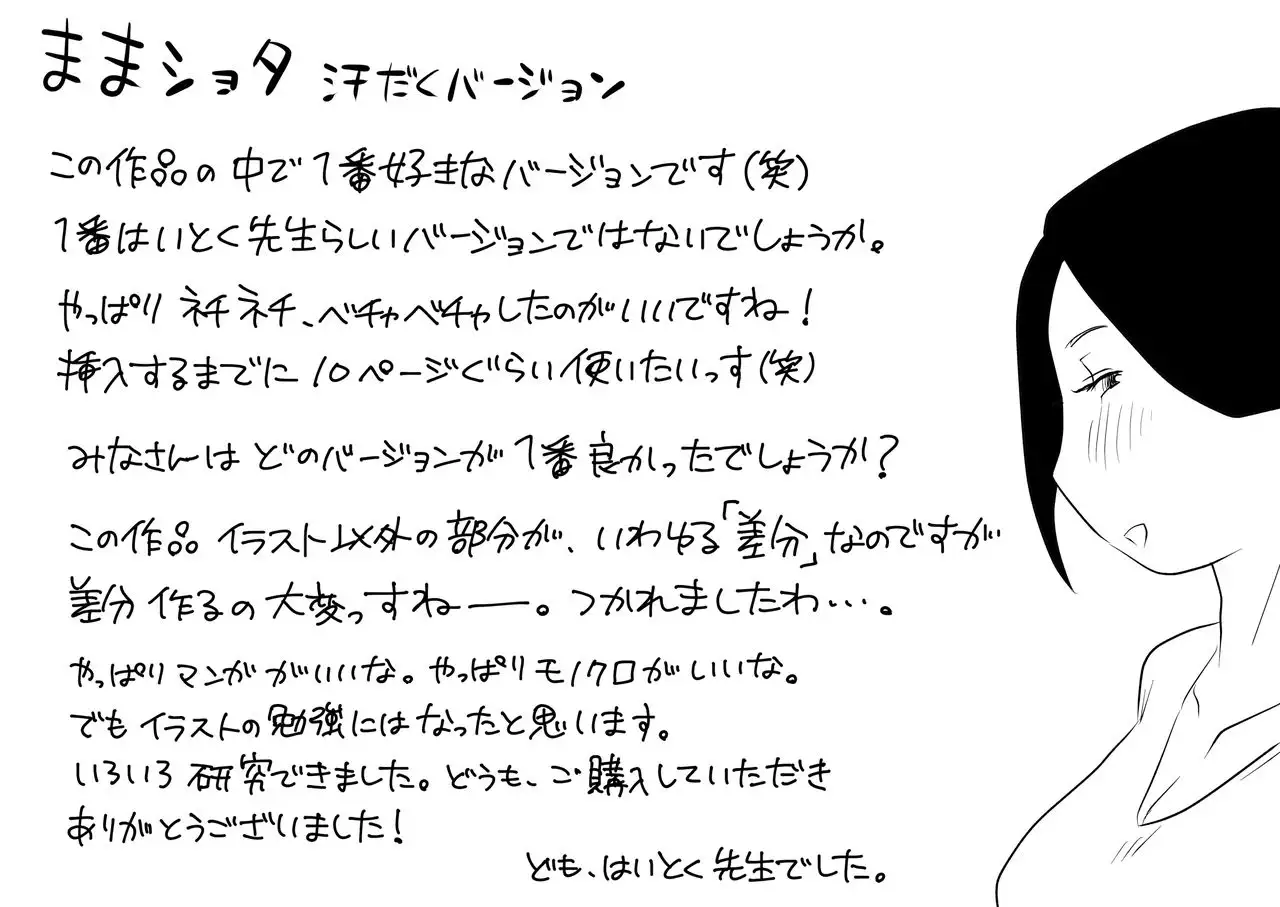 ままショタ 汗だくバージョン
この作品の中で1番好きなバージョンです(笑)
1番はいとく先生らしいバージョンではないでしょうか。
やっぱり ネチネチ、ベチャベチャしたのがいいですね!
挿入するまでに10ページぐらい使いたいっす(笑)
みなさんは どのバージョンが1番良かったでしょうか?
この作品 イラスト以外の部分が、いわゆる「差分」なのですが
差分 作るの大変っすねーー。つかれましたわ・・・。
やっぱりマンガがいいな。やっぱりモノクロがいいな。
でもイラストの勉強にはなったと思います。
いろいろ研究できました。どうも、ご購入していただき
ありがとうございました!
ども、はいとく先生でした。